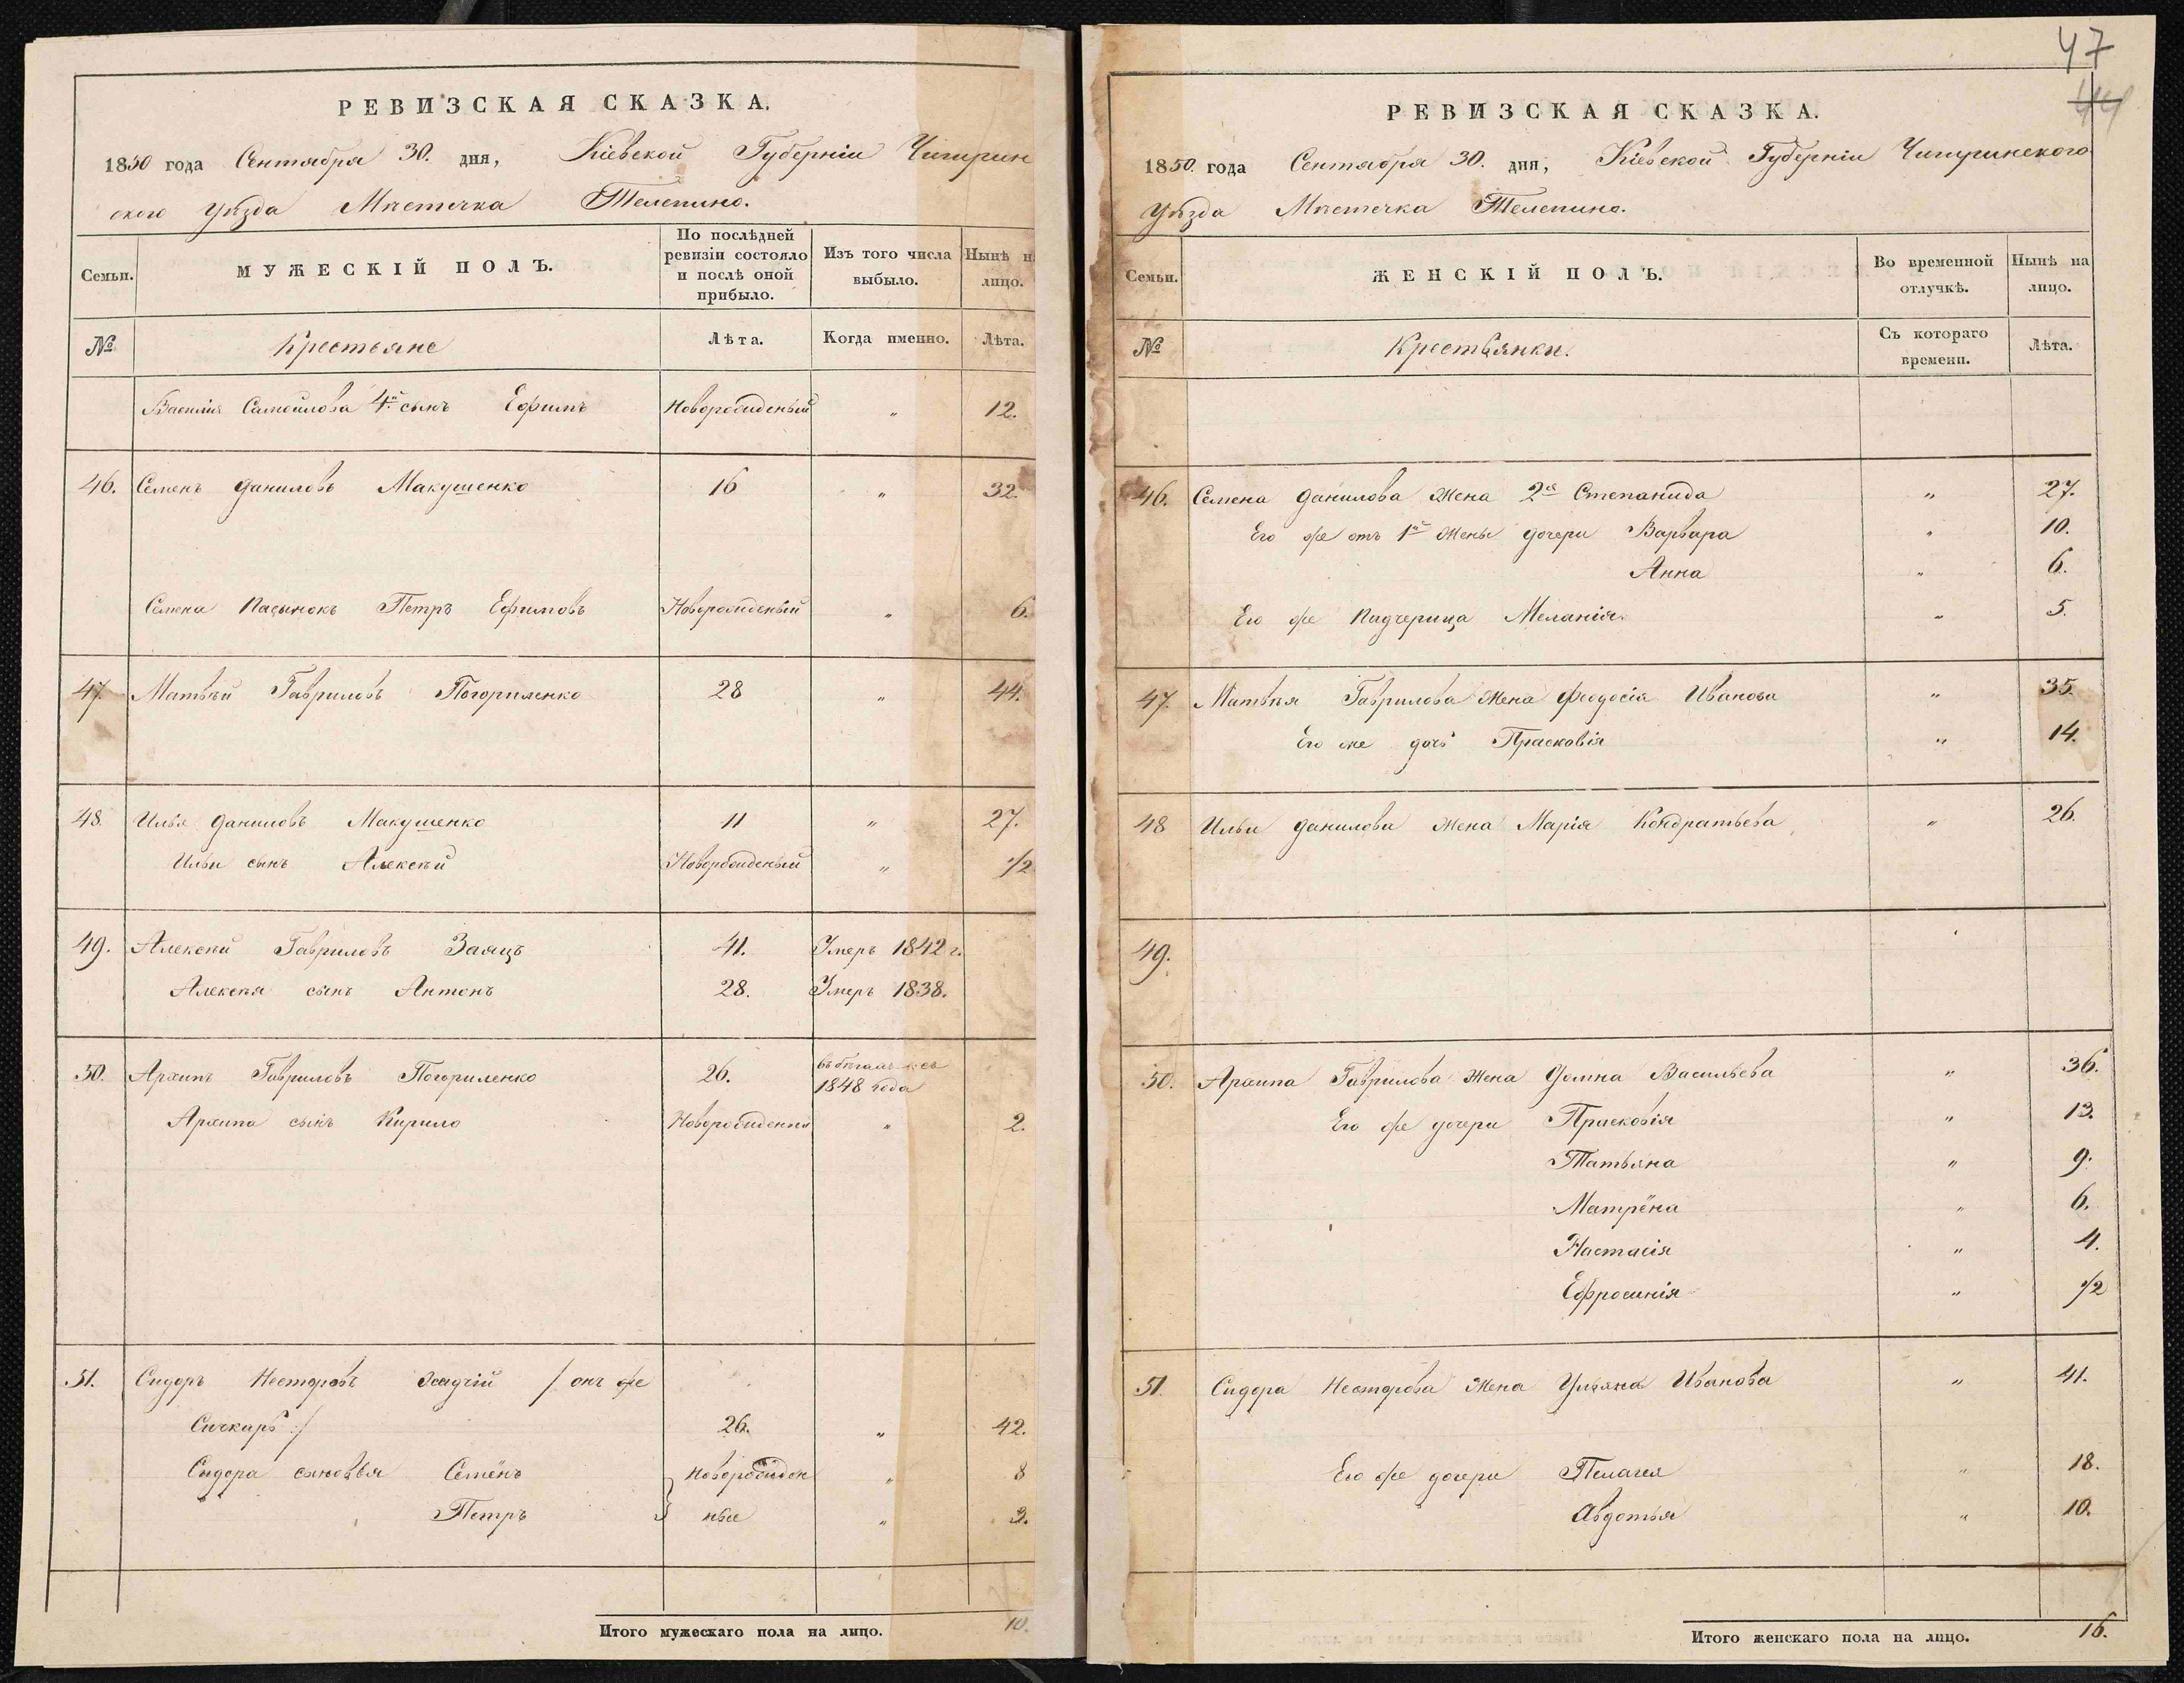 РЕВИЗСКАЯ СКАЗКА.
1850 года Сентября 30. дня, Кіевской Губерніи Чигирин
ского Уѣзда Мѣстечка Телепино.
Семьи.
МУЖЕСКІЙ ПОЛЪ.
По послѣдней ревизіи состояло и послѣ оной прибыло.
Изъ того числа выбыло.
Нынѣ н лицо.
№
Крестьяне
Лѣта.
Когда именно.
Лѣта.
Василия Самойлова 4й сынъ Ефимъ Новорожденый " 12.
46. Семенъ Даниловъ Макушенко 16 " 32.
Семена пасынокъ Петръ Ефимовъ Новорожденый " 6.
47. Матвѣй Гавриловъ Погориленко 28 " 44.
48. Илья Даниловъ Макушенко 11 " 27.
Ильи сынъ Алексѣй Новорожденый " 1/2
49. Алексѣй Гавриловъ Заяцъ 41. Умеръ 1842 г.
Алексѣя сынъ Антонъ 28. Умеръ 1838.
50. Архипъ Гавриловъ Погориленко 26. въ бѣгахъ съ
1848 года
Архипа сынъ Кирило " 2.
51. Сидоръ Несторовъ / онъ же
Сичкарь :/ 26. " 42.
Сидора сыновья Семёнъ новорожден " 8
Петръ ные " 3.
Итого мужескаго пола на лицо. 10.
47
44
РЕВИЗСКАЯ СКАЗКА.
1850. года Сентября 30. дня, Кіевской Губерніи Чигиринского
Уѣзда Мѣстечка Телепино.
Семьи.
ЖЕНСКІЙ ПОЛЪ.
Во временной отлучкѣ.
Нынѣ на лицо.
№
Крестьянки.
Съ котораго времени.
Лѣта.
46. Семена Данилова жена 2я Степанида " 27.
Его же отъ 1й жены дочери Варвара " 10.
Анна " 6.
Его же падчерица Меланія. " 5.
47. Матвѣя Гаврилова жена Феодосія Иванова " 35.
Его же дочь Прасковія " 14.
48 Ильи Данилова жена Марія Кондратьева " 26.
49.
50. Архипа Гаврилова жена Домна Васильева " 36.
Его же дочери Прасковія " 13.
Татьяна " 9.
Матрёна " 6.
Настасія " 4.
Ефросинія " 1/2
51. Сидора Несторова жена Ульяна Иванова " 41.
Его же дочери Пелагея " 18.
Авдотья " 10.
Итого женскаго пола на лицо. 16.